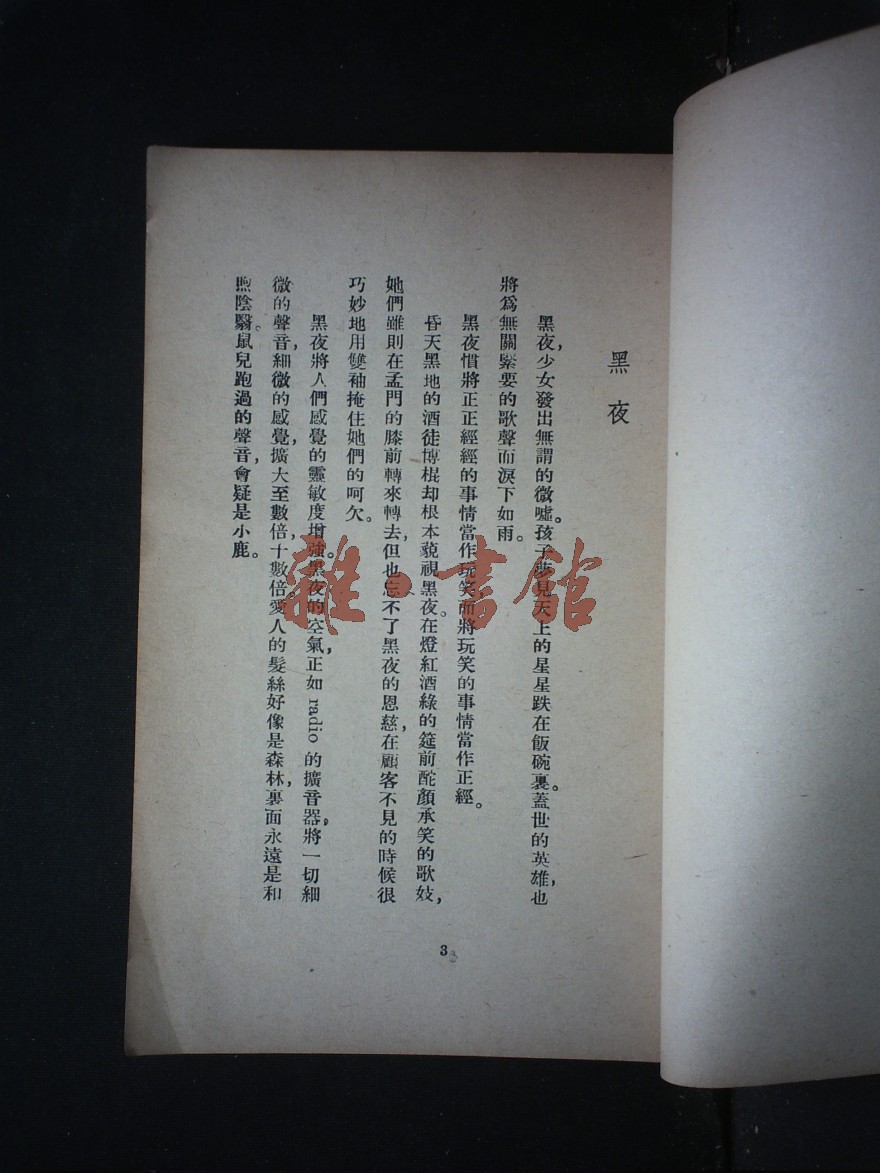 黑夜
黑夜，少女發出無謂的微噓。孩子夢見天上的星星跌在飯碗裏。蓋世的英雄，也
將爲無關緊要的歌聲而淚下如雨。
黑夜慣將正正經經的事情當作玩笑，而將玩笑的事情當作正經。
昏天黑地的酒徒博棍却根本藐視黑夜。在燈紅酒綠的筵前酡顏承笑的歌妓，
她們雖則在孟門的膝前轉來轉去，但也忘不了黑夜的恩慈，在顧客不見的時候很
巧妙地用雙袖掩住她們的呵欠。
黑夜將人們感覺的靈敏度增強。黑夜的空氣，正如 radio 的擴音器，將一切細
微的聲音，細微的感覺，擴大至數倍，十數倍。愛人的髮絲好像是森林，裏面永遠是和
煦陰翳。鼠兒跑過的聲音，會疑是小鹿。
3
雜·書館